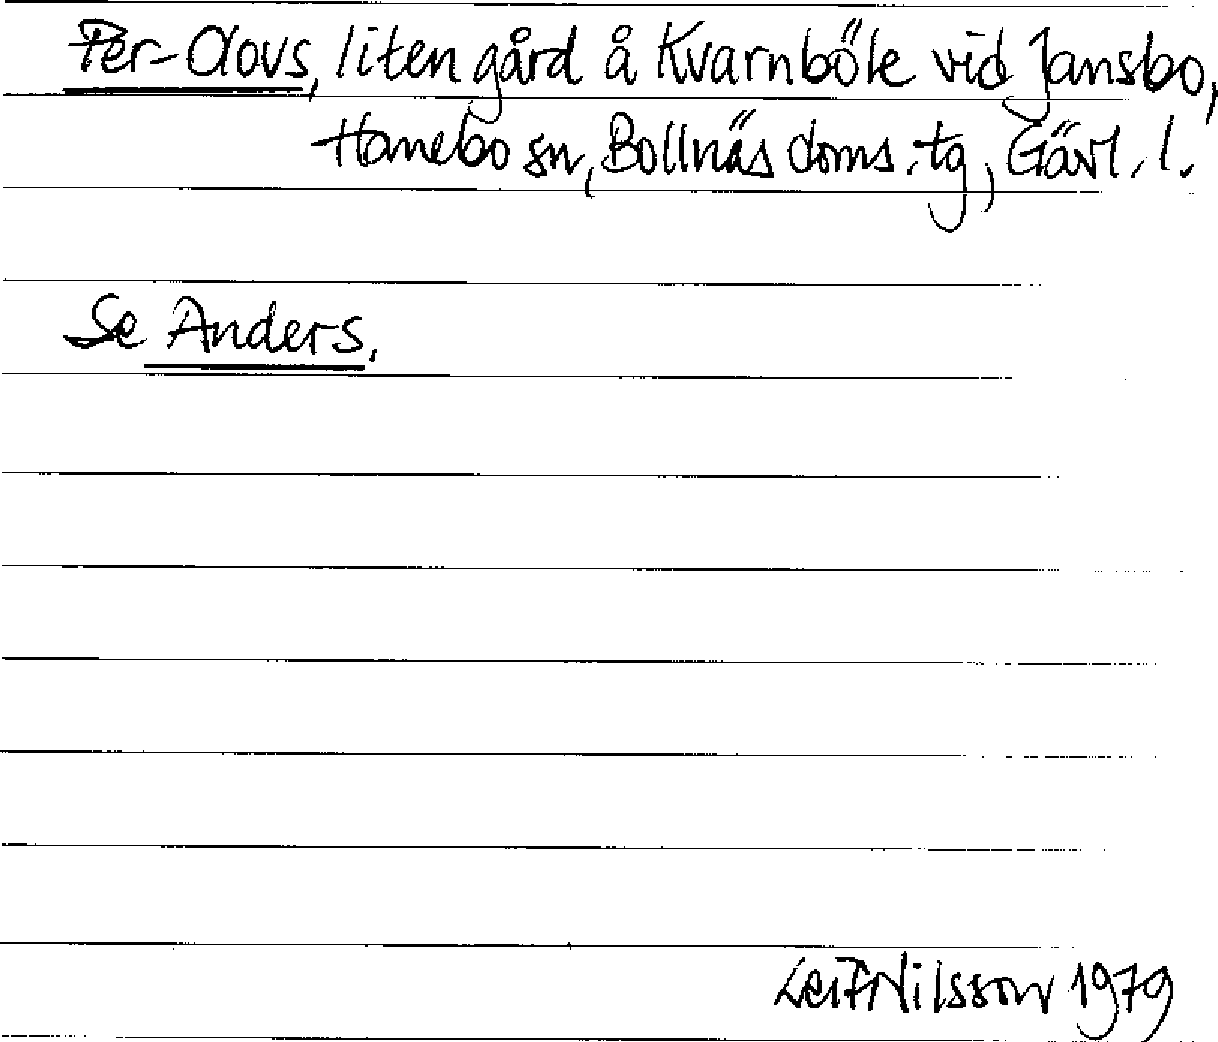 Per-Olovs, liten gård å Kvarnböle vid Jansbo,
Hanebo sn, Bollnäs doms.tg, Gävl. l.
Se Anders.
Leif Nilsson 1979